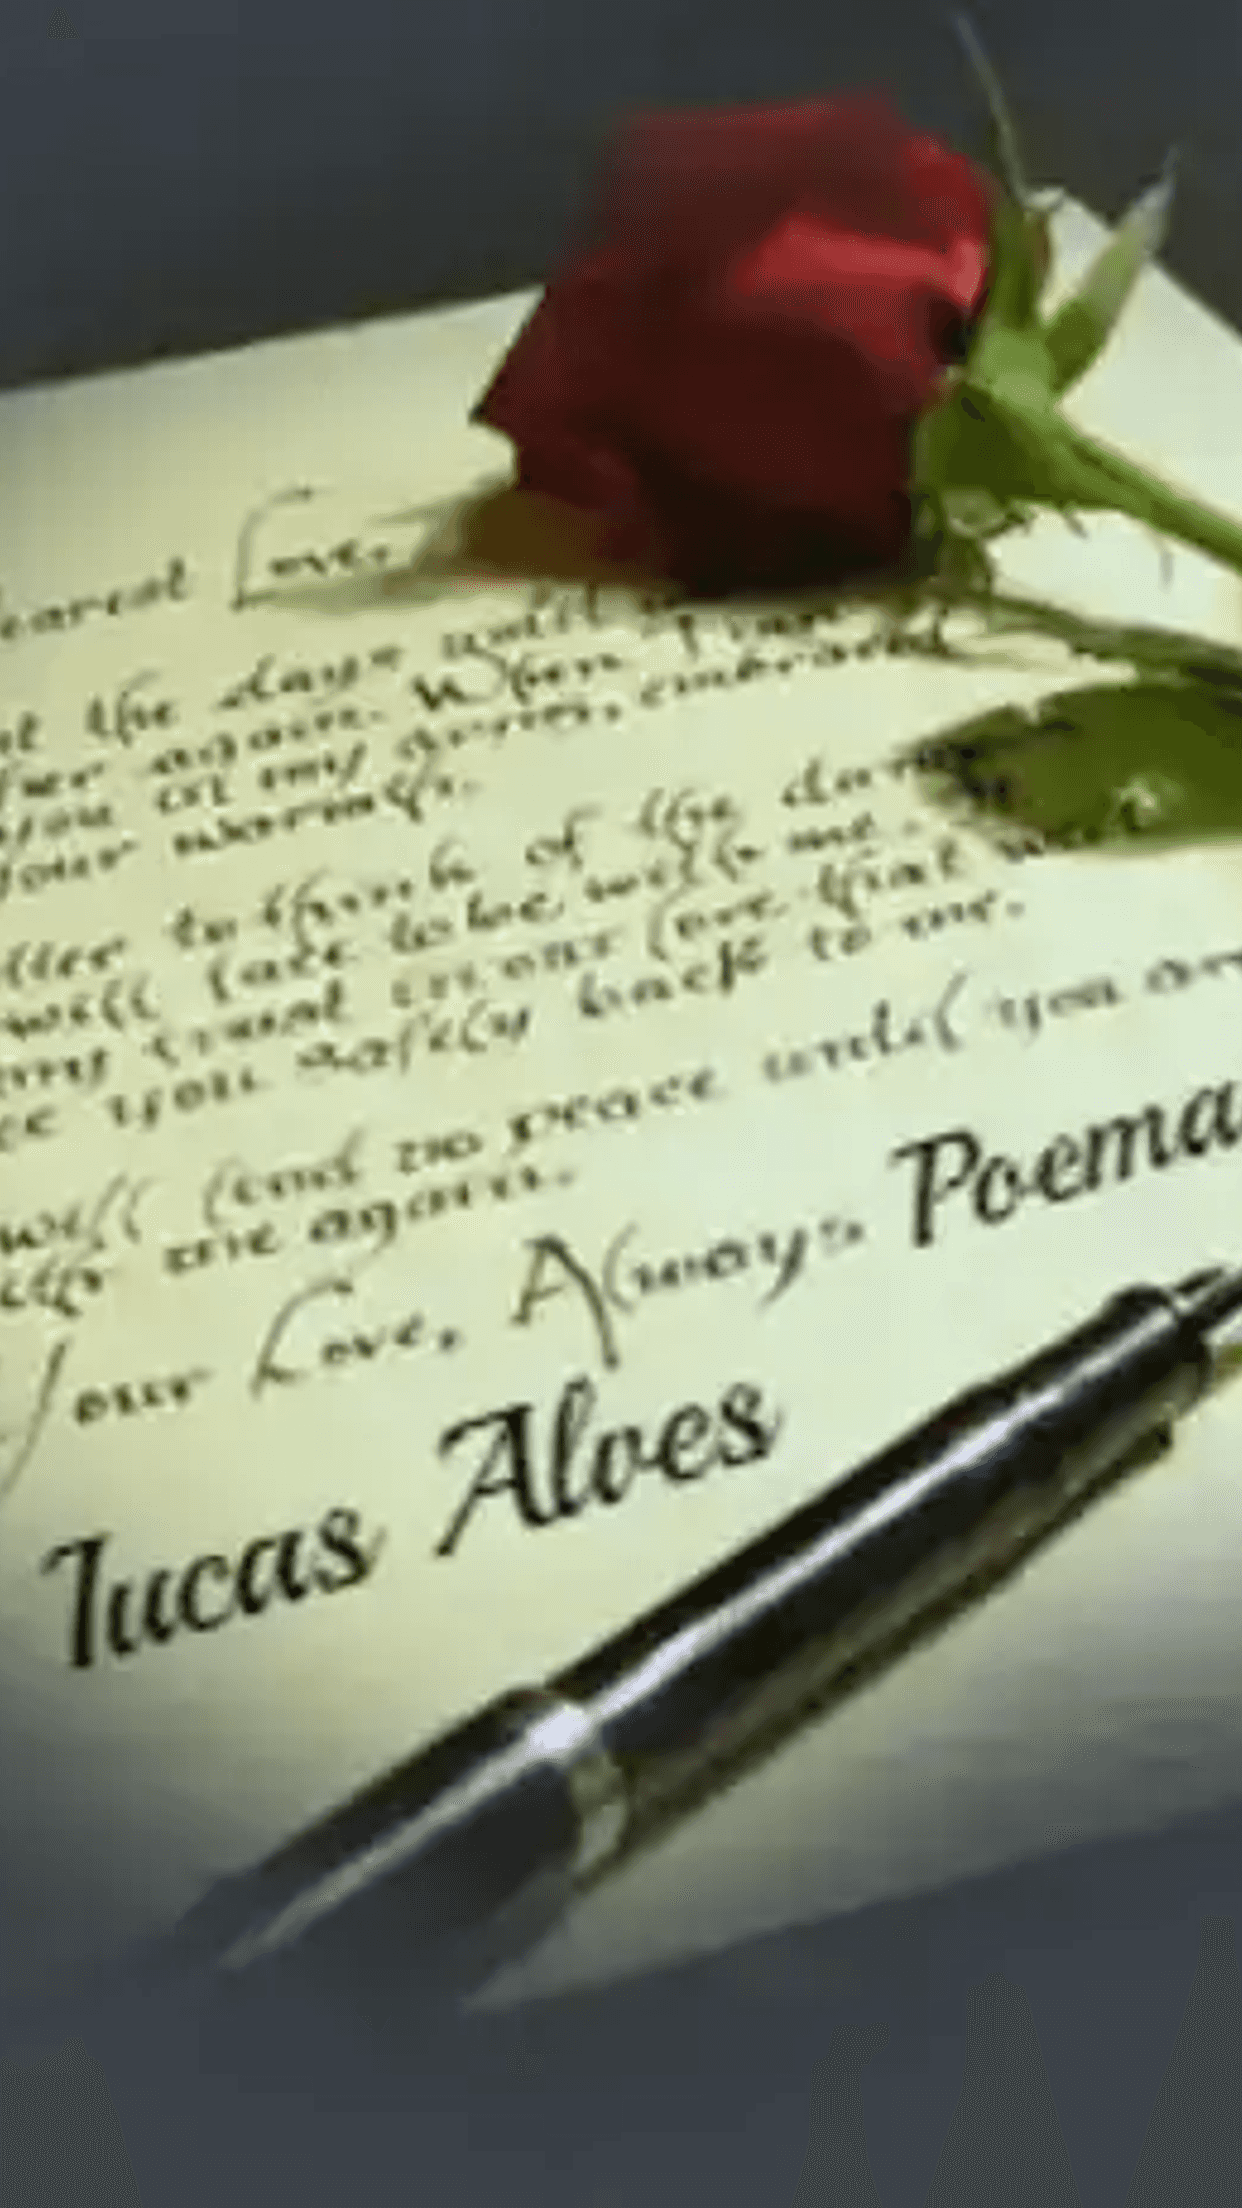 earest Love,
the days until
again. When
you in my arms, embraced
your warmth.
to think of the
will to be with me.
my trust in our love that
you safely back to me.
will find no peace until you are
me again.
Your Love, Always. Poema
Lucas Alves